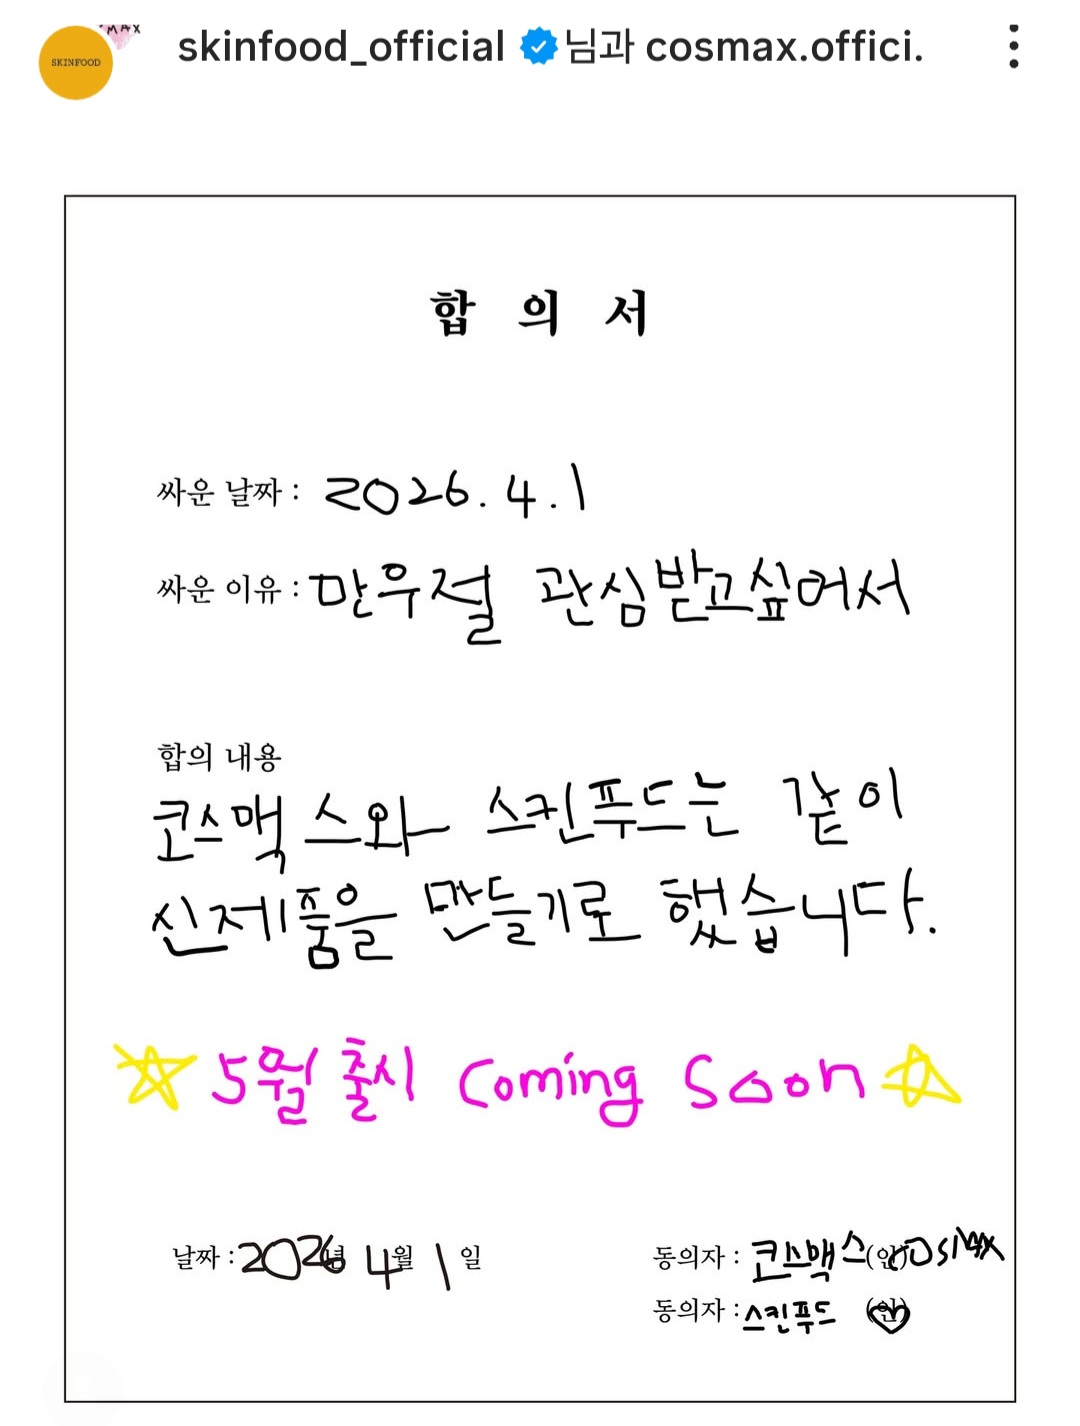 COSMAX
SKINFOOD
skinfood_official 님과 cosmax.offici.
합의서
싸운 날짜 : 2026.4.1
싸운 이유 : 만우절 관심받고싶어서
합의 내용
코스맥스와 스킨푸드는 같이
신제품을 만들기로 했습니다.
5월 출시 Coming Soon
날짜 : 2026년 4월 1일
동의자 : 코스맥스 (인) COSMAX
동의자 : 스킨푸드 (인)